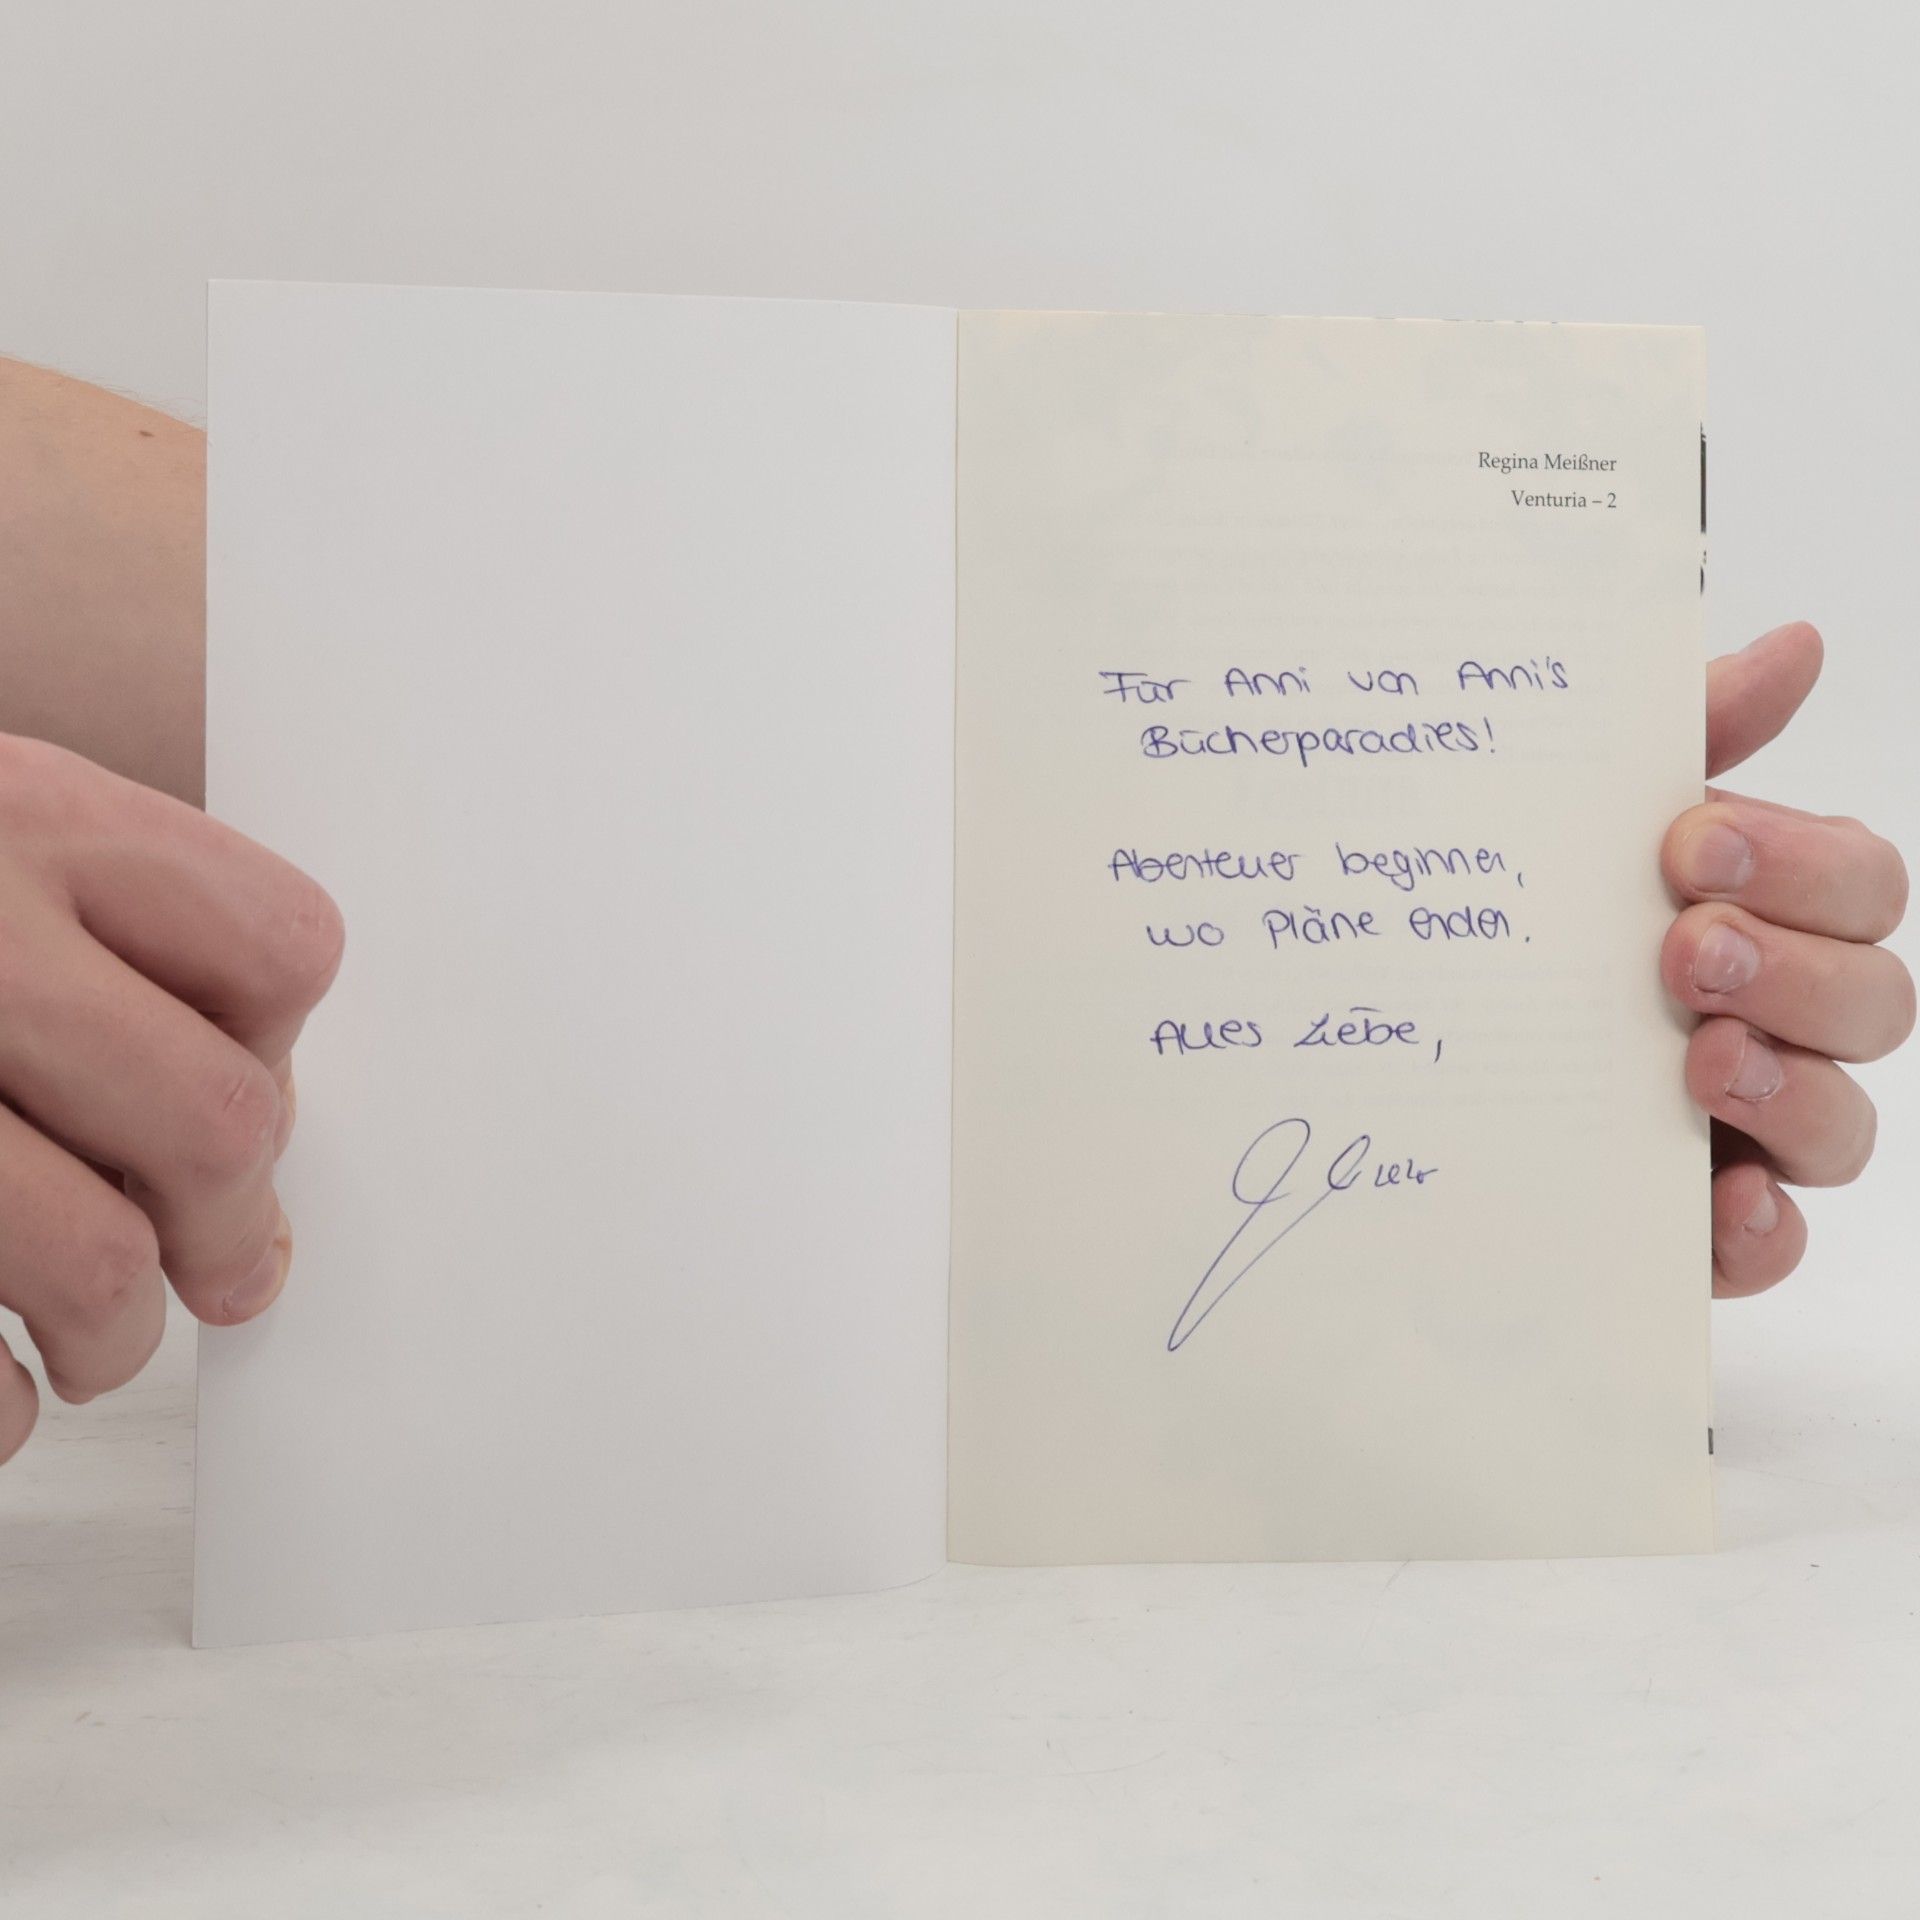 Regina Meißner
Venturia – 2
Für Anni von Anni's
Bücherparadies!
Abenteuer beginnen,
wo Pläne enden.
Alles Liebe,